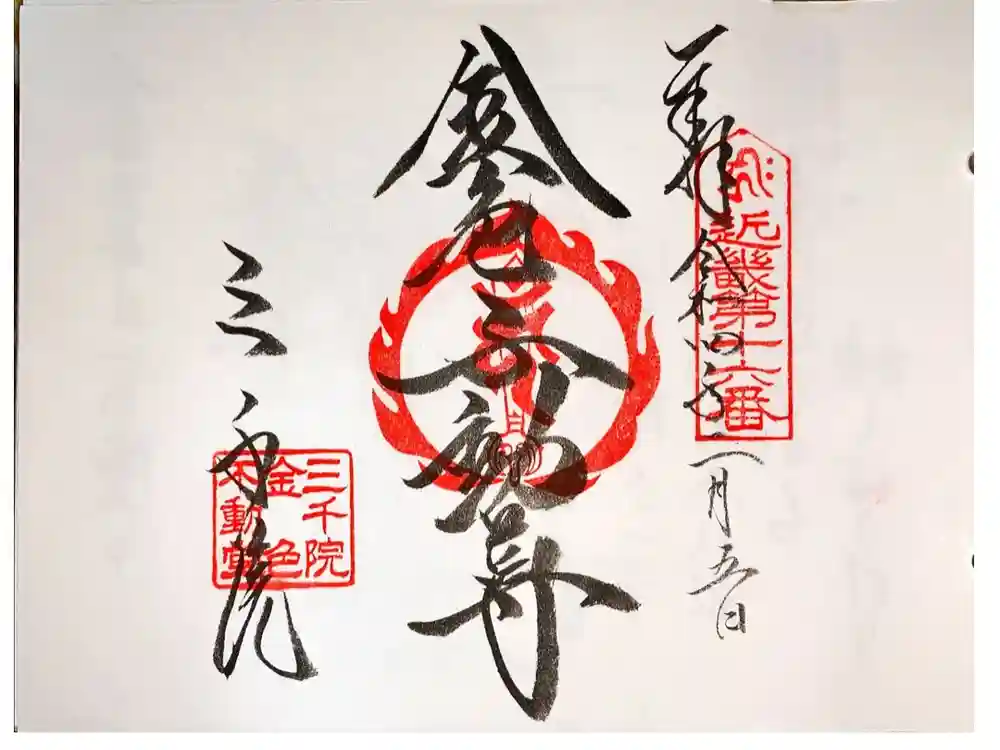 奉拝
令和四年二月五日
近畿第十六番
金色不動尊
三千院
三千院
金色
不動堂